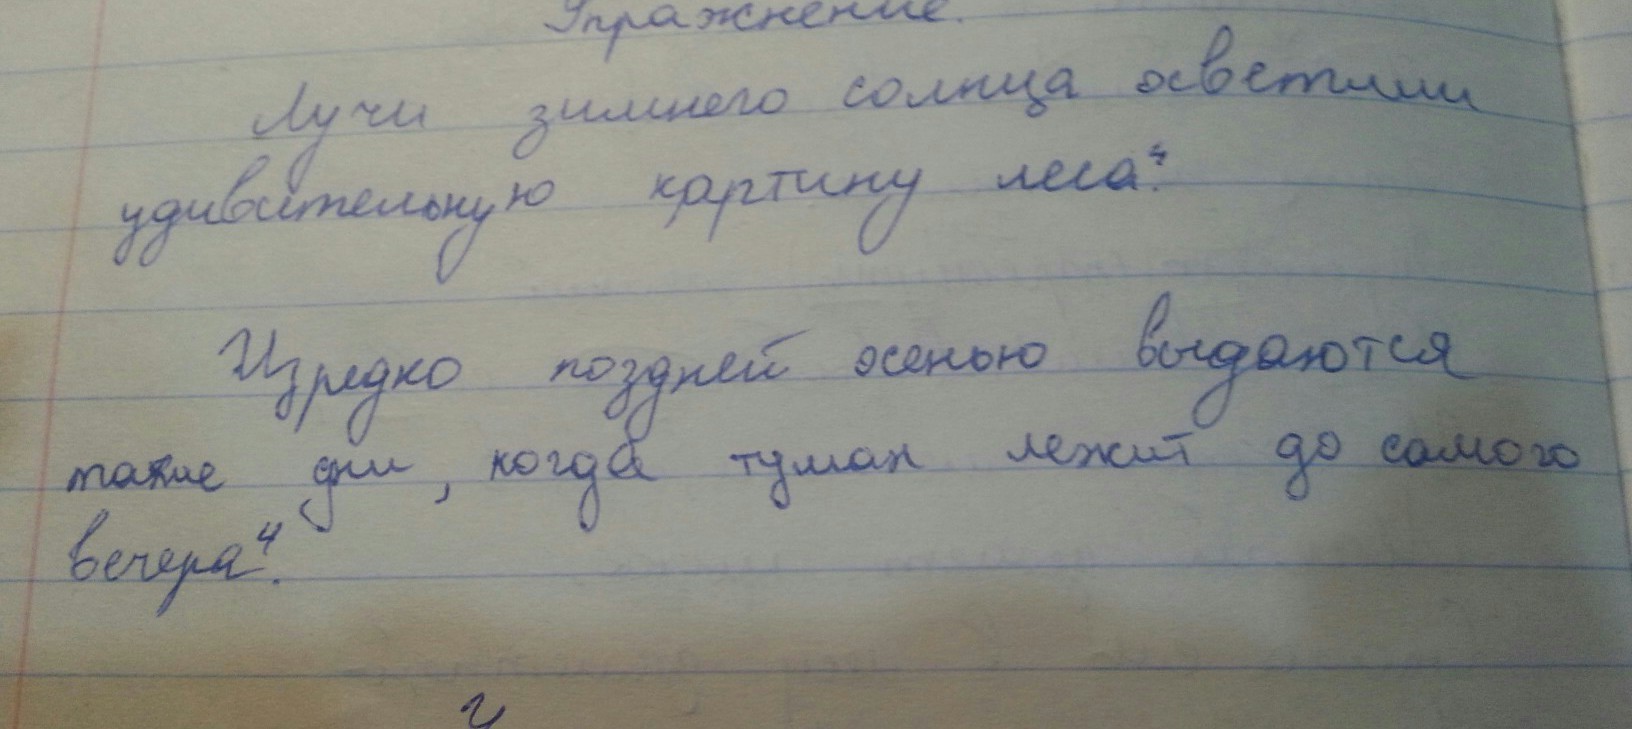 Упражнение.
Лучи зимнего солнца осветили
удивительную картину леса⁴.
Изредко поздней осенью выдаются
такие дни, когда туман лежит до самого
вечера⁴.